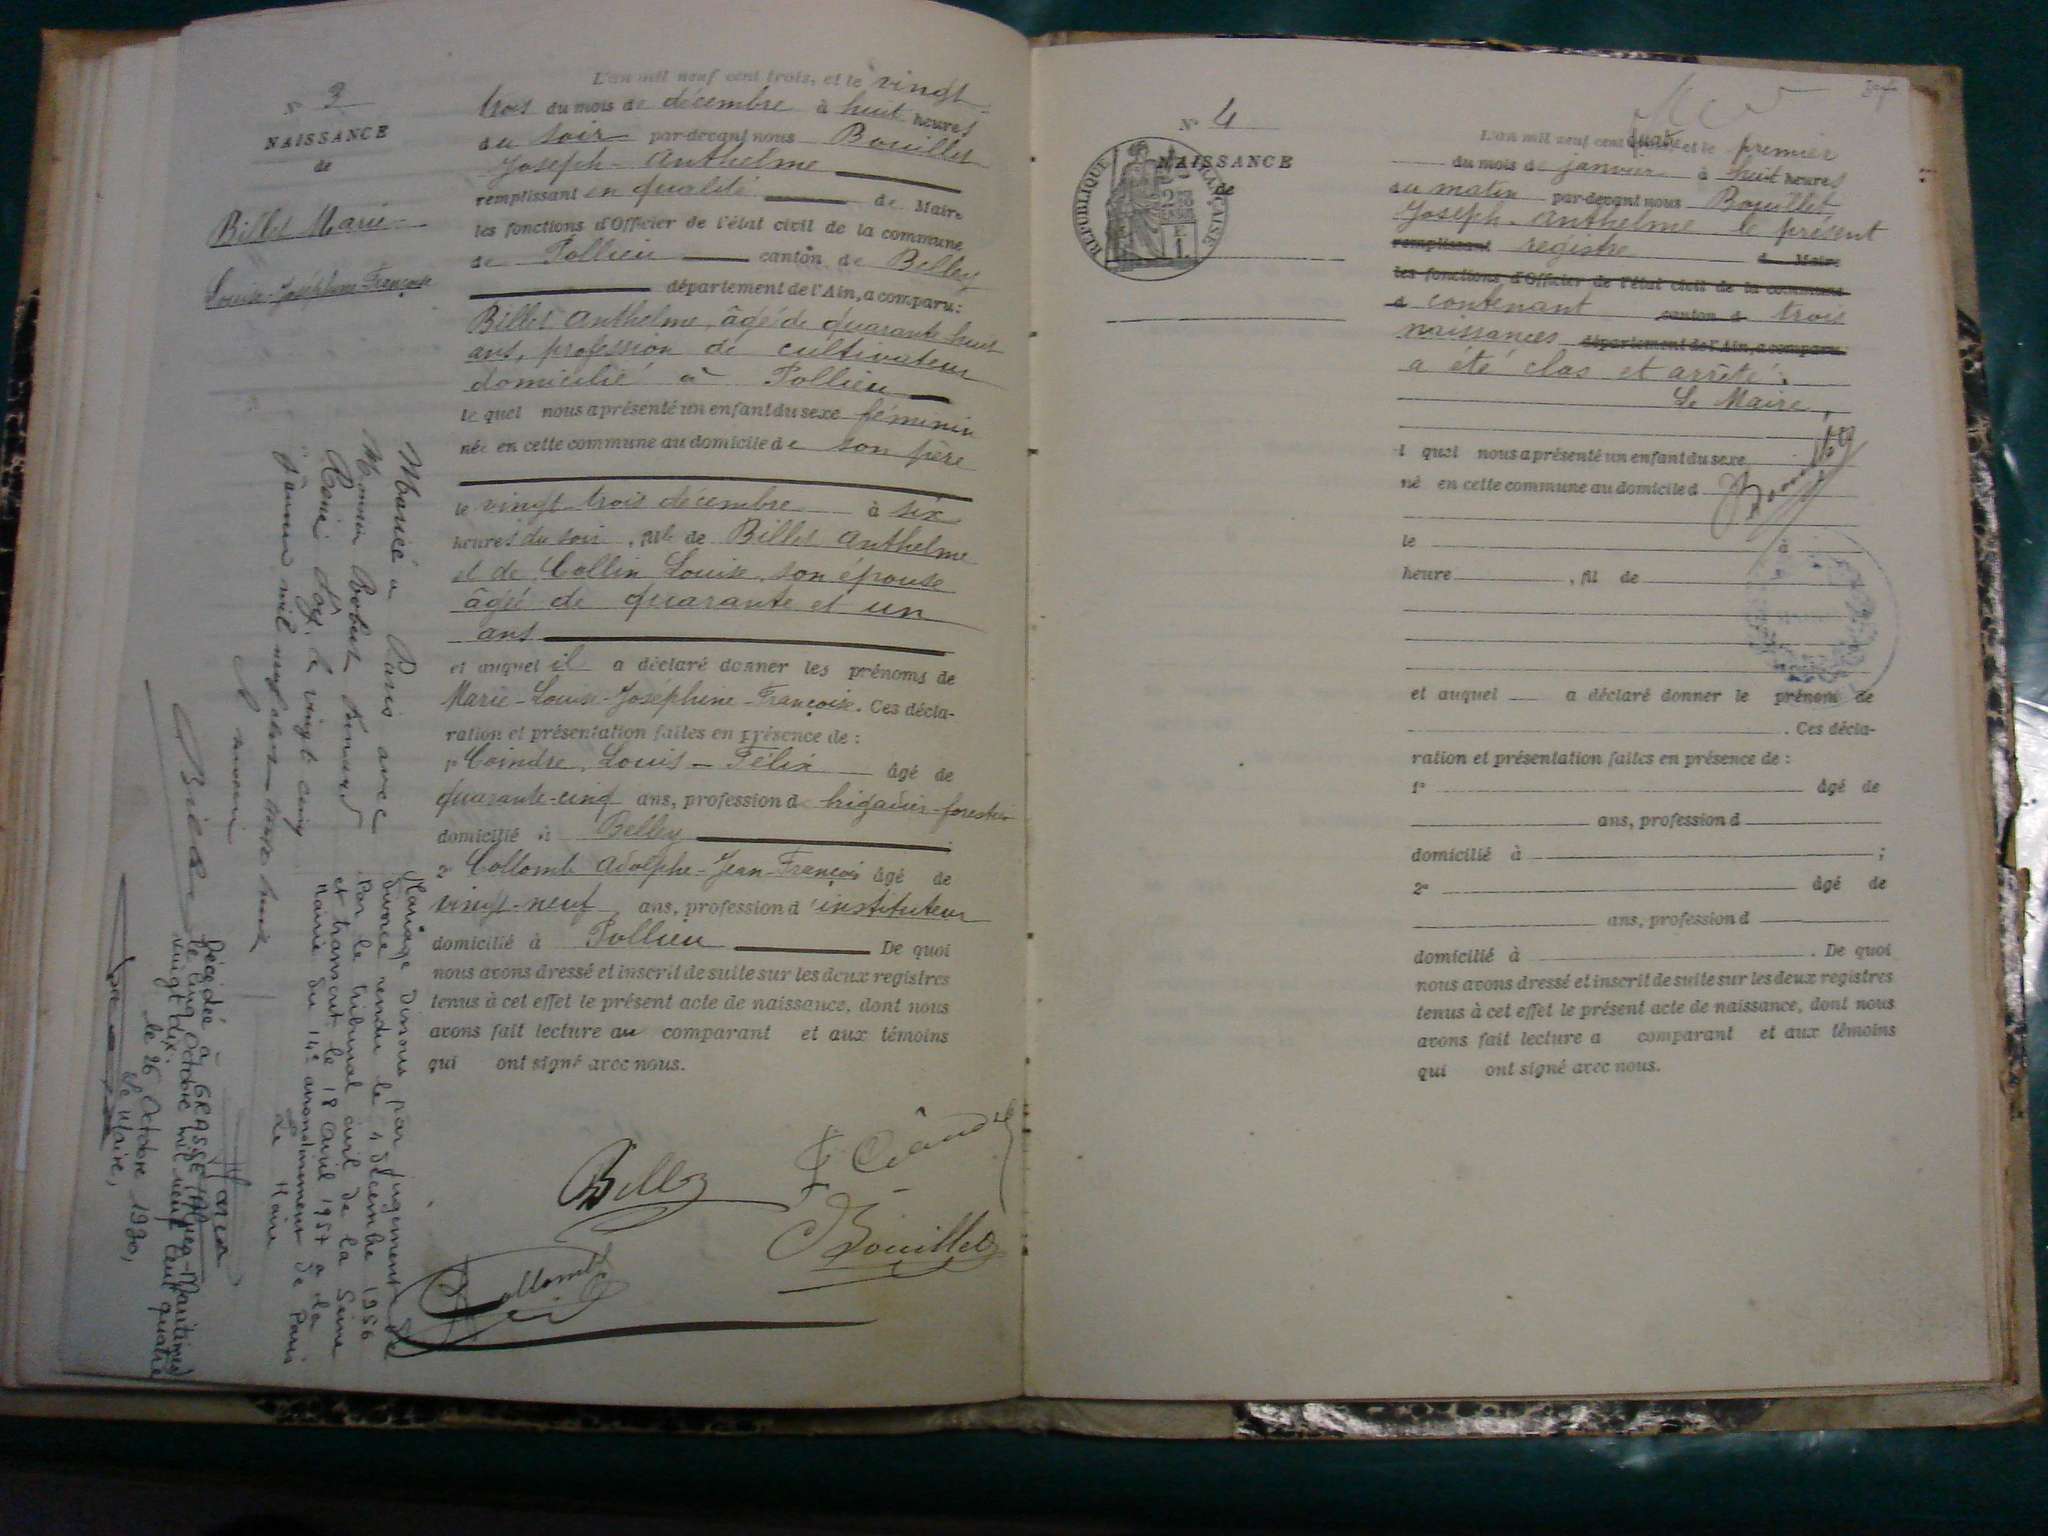 N° 3
NAISSANCE
de
Billet Marie-
Louise-Joséphine-Françoise
L'an mil neuf cent trois, et le vingt-
trois du mois de décembre à huit heures
du soir par-devant nous Bouillet
Joseph-Anthelme
remplissant en qualité de Maire
les fonctions d'Officier de l'état civil de la commune
de Pollieu canton de Belley
département de l'Ain, a comparu:
Billet Anthelme, âgé de quarante huit
ans, profession de cultivateur
domicilié à Pollieu
le quel nous a présenté un enfant du sexe féminin
née en cette commune au domicile de son père
le vingt trois décembre à six
heures du soir, fille de Billet Anthelme
et de Collin Louise, son épouse
âgée de quarante et un
ans
et auquel il a déclaré donner les prénoms de
Marie-Louise-Joséphine-Françoise. Ces décla-
ration et présentation faites en présence de :
1° Coindre, Louis-Félix âgé de
quarante-cinq ans, profession d brigadier-forestier
domicilié à Belley
2° Collomb Adolphe-Jean-François âgé de
vingt-neuf ans, profession d'instituteur
domicilié à Pollieu De quoi
nous avons dressé et inscrit de suite sur les deux registres
tenus à cet effet le présent acte de naissance, dont nous
avons fait lecture au comparant et aux témoins
qui ont signé avec nous.
Billet
Bouillet
Collomb
Mariée à Paris avec
Monsieur Robert
René le vingt cinq
janvier mil neuf cent
Mariage dissous par jugement de
divorce rendu le 4 décembre 1956
Par le tribunal civil de la Seine
et transcrit le 18 avril 1957 à la
Mairie du 14e arrondissement de Paris
Le Maire
Décédée à GRASSE (Alpes-Maritimes)
le cinq Octobre mil neuf cent quatre
vingt dix.
le 26 Octobre 1990,
Le Maire,
N° 4
NAISSANCE
de
RÉPUBLIQUE FRANÇAISE
L'an mil neuf cent quatre et le premier
du mois de janvier à huit heures
du matin par-devant nous Bouillet
Joseph-Anthelme le présent
remplissant registre d Maire
les fonctions d'Officier de l'état civil de la commune
d contenant canton d trois
naissances département de l'Ain, a comparu
a été clos et arrêté.
Le Maire,
l quel nous a présenté un enfant du sexe
né en cette commune au domicile d
le à
heure , fil de
et auquel a déclaré donner le prénom de
. Ces décla-
ration et présentation faites en présence de :
1° âgé de
ans, profession d
domicilié à ;
2° âgé de
ans, profession d
domicilié à . De quoi
nous avons dressé et inscrit de suite sur les deux registres
tenus à cet effet le présent acte de naissance, dont nous
avons fait lecture a comparant et aux témoins
qui ont signé avec nous.